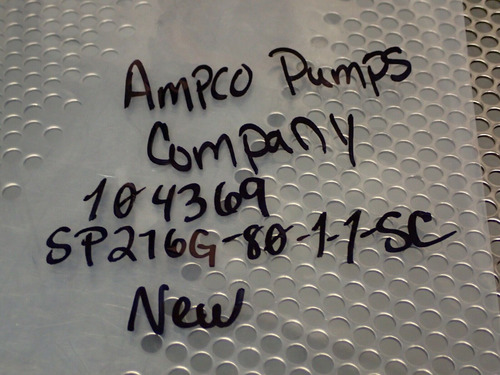 Ampco Pumps
Company
104369
SP216G-80-1-1-SC
New